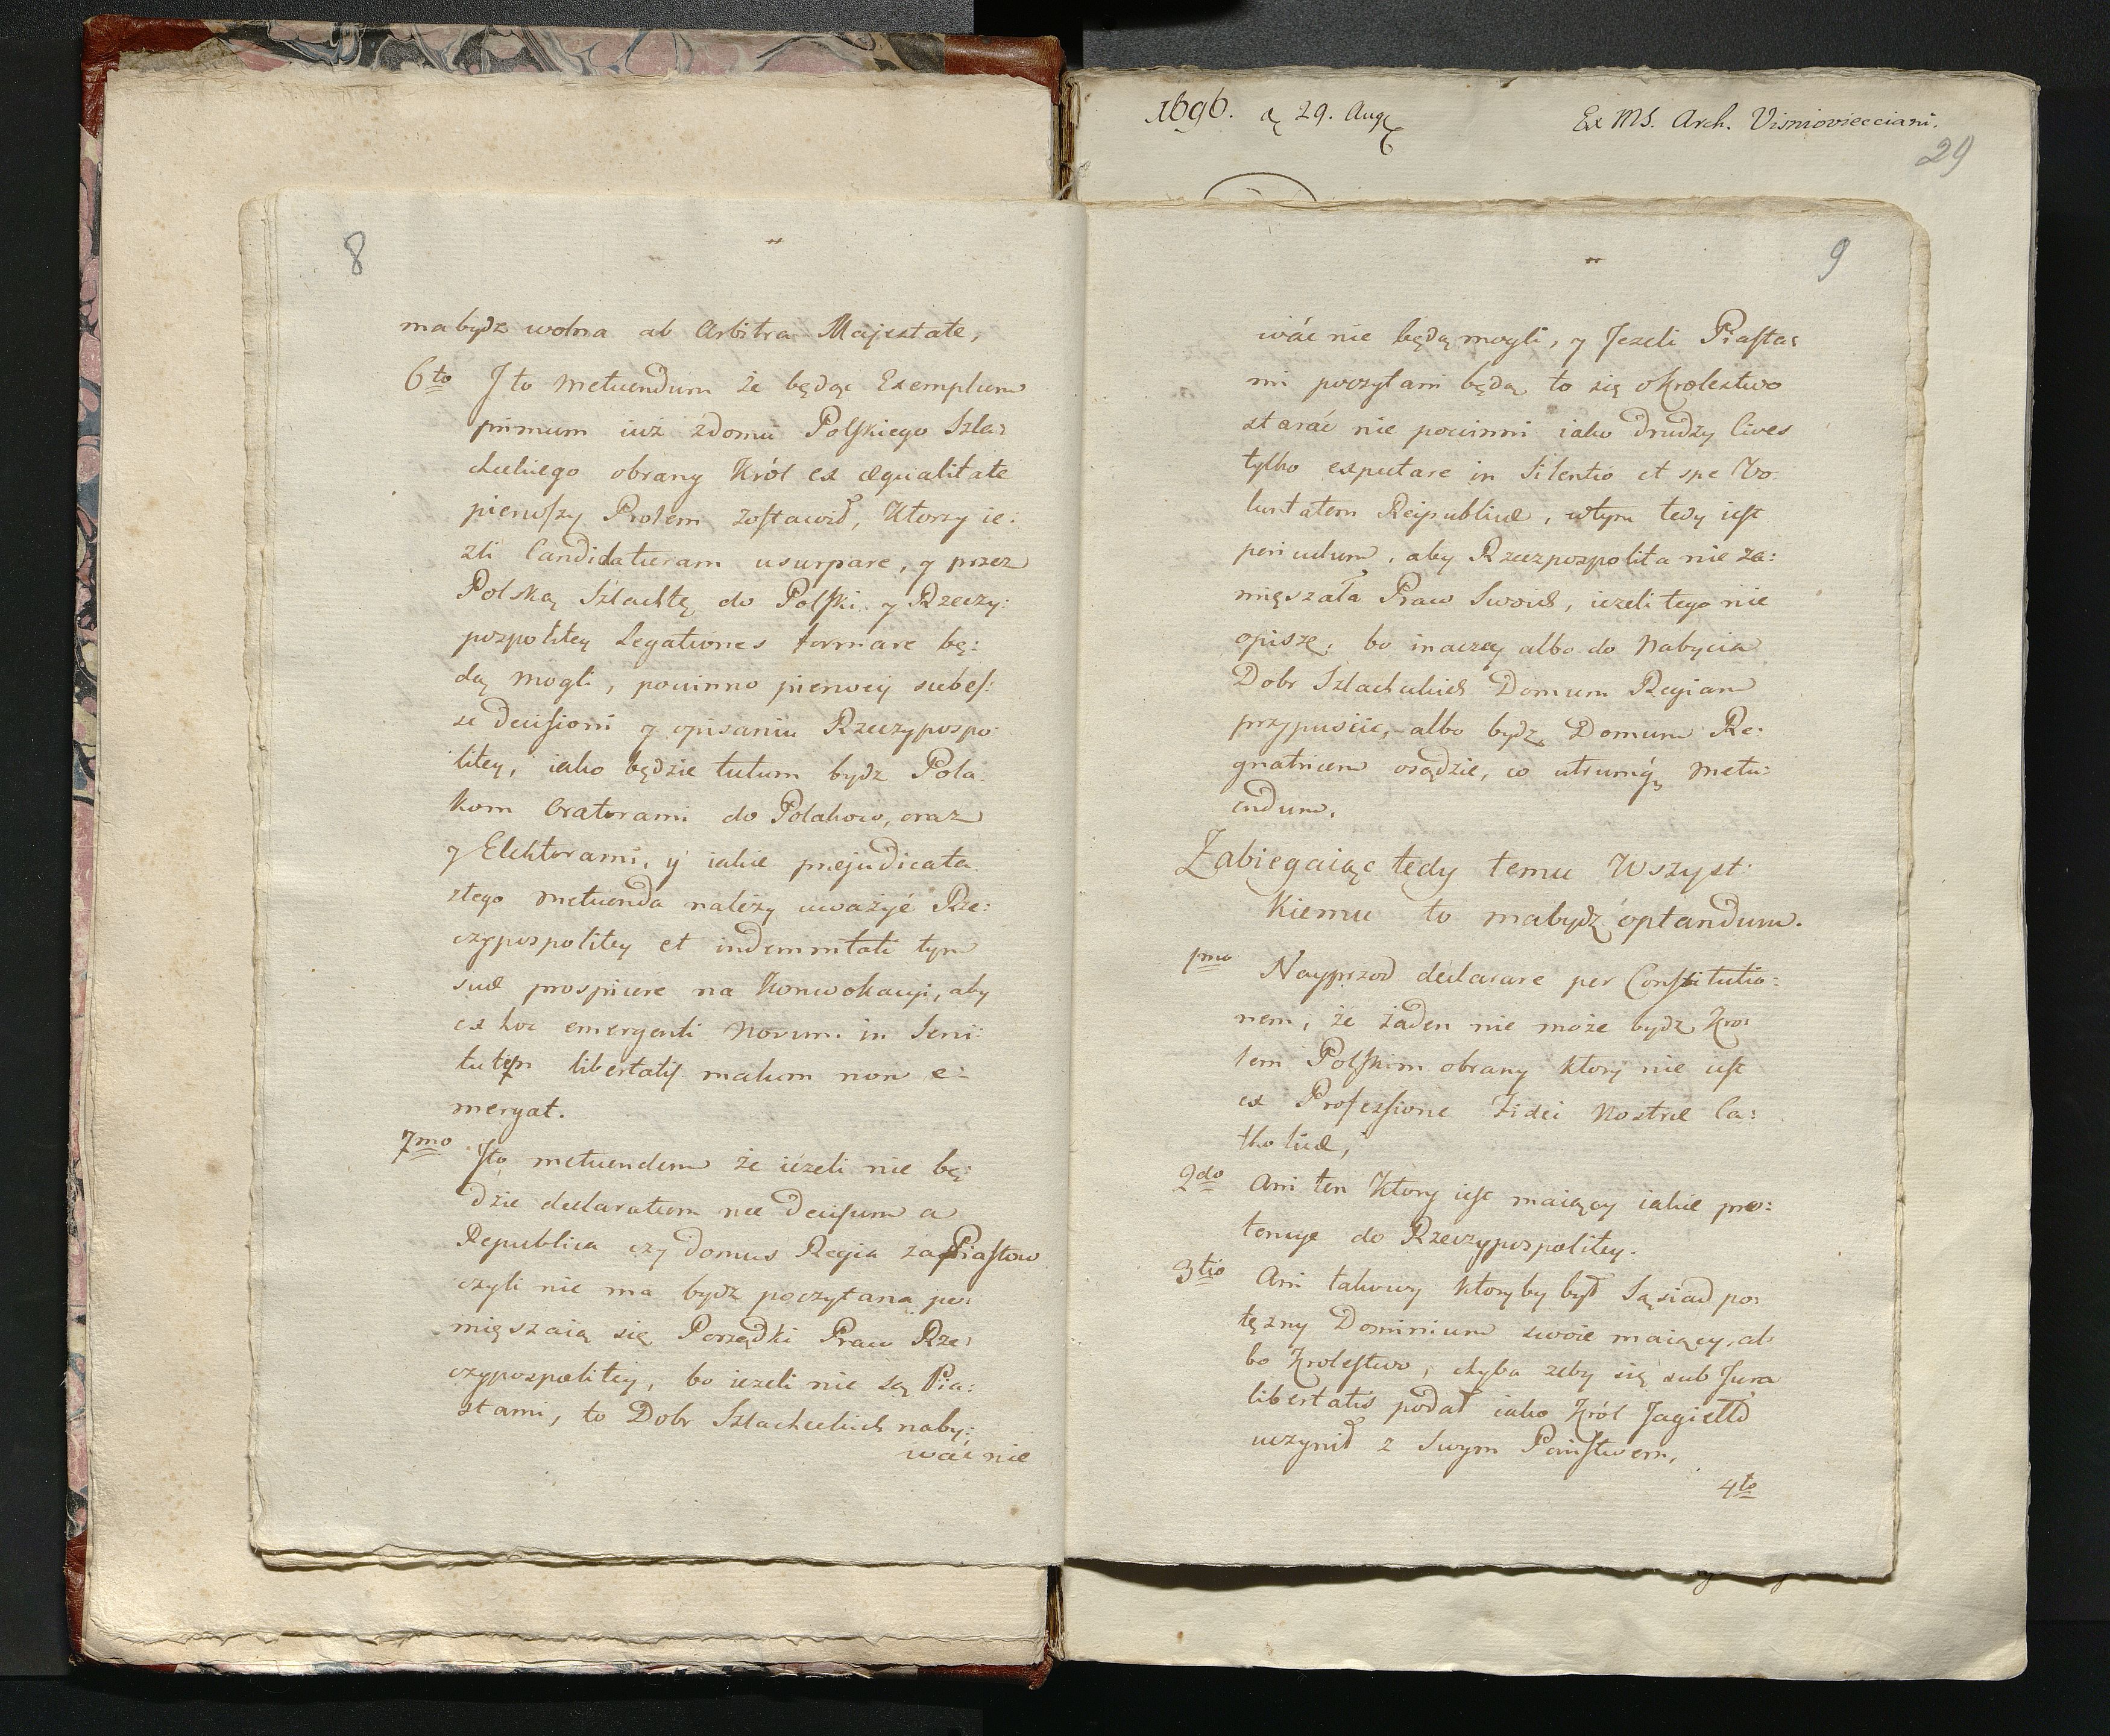 8
ma bydz wolna ab Arbitra Majestate,
6to Jto metuendum że będąc Exemplum
primum iuż z domu Polskiego Szla:
checkiego obrany Król ex æqualitate
pierwszy Prolem zostawił, Ktorzy ie:
zli Candidaturam usurpare, y przez
Polską Szlachtę do Polski y Rzeczy:
pospolitey Legationes formare bę:
dą mogli, powinno pierwey subes:
se decisioni y opisaniu Rzeczypospo:
litey, iako będzie tutum bydz Pola:
kom Oratorami do Polakow, oraz
y Elektorami, y iakie prejudicata
ztego metuenda należy uważyć Rze:
czypospolitey et indemnitati tym
suæ prospicere na Konwokacyi, aby
ex hoc emergenti novum in Servi:
tutem libertatis malum non e:
mergat.
7mo Jto metuendum że ieżeli nie bę:
dzie declaratum nec decisum a
Republica czy domus Regia za Piastow
czyli nie ma bydz poczytana po:
mięszaią się Porządki Praw Rze:
czypospolitey, bo ieżeli nie są Pia:
stami, to Dobr Szlacheckich naby:
wać nie
1696. d. 29. Aug
Ex MS. Arch. Visnioviecciani.
29
9
wać nie będą mogli, y Jezeli Piasta:
mi poczytani będą to się o Krolestwo
starać nie powinni iako drudzy Cives
tylko expectare in Silentio et spe Vo:
luntatem Reipublicæ, w tym tedy iest
periculum, aby Rzeczpospolita nie za:
mięszała Praw Swoich, ieżeli tego nie
opisze, bo inaczey albo do nabycia
Dobr Szlacheckich Domum Regiam
przypuscic, albo bydz Domum Re:
gnatricem osądzie, co utrumq metu:
endum.
Zabiegaiąc tedy temu Wszyst:
Kiemu to ma bydz optandum.
1mo Nayprzod declarare per Constitutio:
nem, że żaden nie może bydz Kro:
lem Polskim obrany ktory nie iest
ex Professione Fidei Nostræ Ca:
tholicæ,
2do Ani ten Ktory iest maiący iakie pre:
tensye do Rzeczypospolitey.
3tio Ani takowy ktoryby był Sąsiad po:
tężny Dominium swoie maiący, al:
bo Krolestwo, chyba zeby się sub Jura
libertatis podał iako Król Jagiełło
uczynił z Swym Państwem,
4to